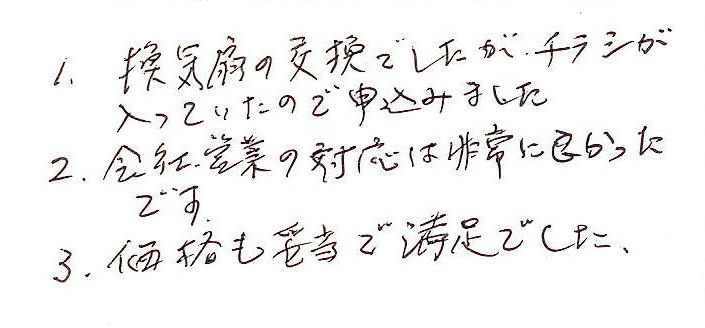 1. 換気扇の交換でしたが、チラシが
入っていたので申込みました
2. 会社.営業の対応は非常に良かった
です.
3. 価格も妥当で満足でした、